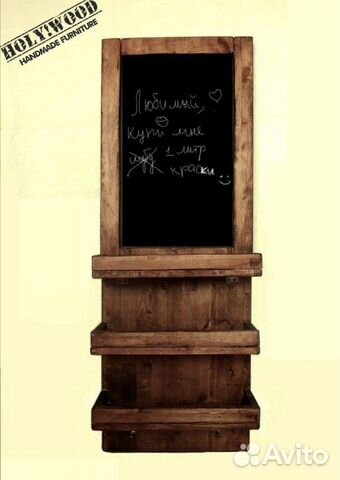 HOLY!WOOD
HANDMADE FURNITURE
Любимый, ♡
купи мне
шубу 1 литр
краски
Avito